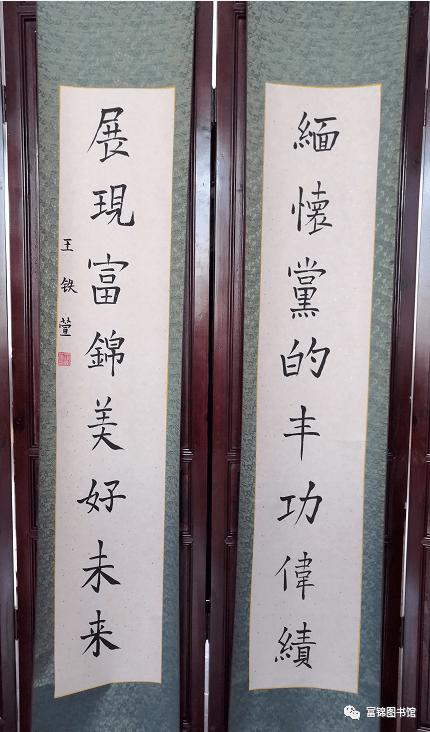 緬懷黨的丰功偉績
展現富錦美好未来
王铁萱
富锦图书馆